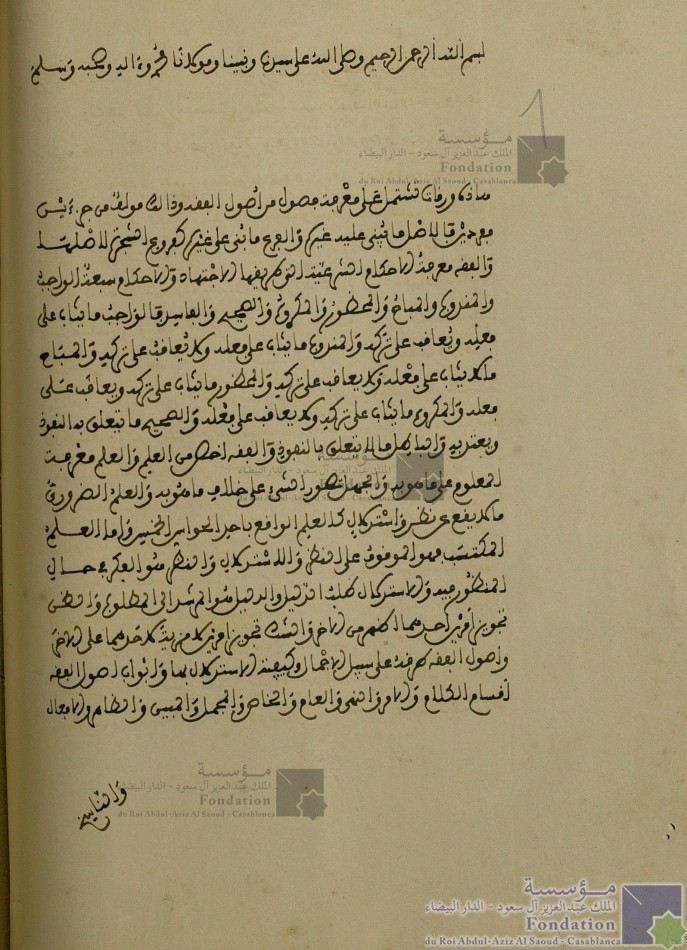 بسم الله الرحمن الرحيم وصلى الله على سيدنا ونبينا ومولانا محمد وءاله وصحبه وسلم
1
مؤسسة
الملك عبد العزيز آل سعود - الدار البيضاء
Fondation
du Roi Abdul-Aziz Al Saoud - Casablanca
هذه ورقات تشتمل على معرفة فصول من أصول الفقه وذلك مولف من جزءين
مفردين فالاصل ما يبنى عليه غيره والفرع ما يبنى على غيره كفروع الشجرة لاصلها
والفقه معرفة الاحكام الشرعية التي طريقها الاجتهاد والاحكام سبعة الواجب
والمندوب والمباح والمحظور والمكروه والصحيح والفاسد فالواجب ما يثاب على
فعله ويعاقب على تركه والمندوب ما يثاب على فعله ولا يعاقب على تركه والمباح
ما لا يثاب على فعله ولا يعاقب على تركه والمحظور ما يثاب على تركه ويعاقب على
فعله والمكروه ما يثاب على تركه ولا يعاقب على فعله والصحيح ما يتعلق به النفوذ
ويعتد به والباطل ما لا يتعلق به النفوذ والفقه اخص من العلم والعلم معرفة
المعلوم على ما هو به والجهل تصور الشيء على خلاف ما هو به والعلم الضروري
ما لا يقع عن نظر واستدلال كالعلم الواقع باحدى الحواس الخمس واما العلم
المكتسب فهو الموقوف على النظر والاستدلال والنظر هو الفكر في حال
المنظور فيه والاستدلال طلب الدليل والدليل هو المرشد الى المطلوب والظن
تجويز أمرين أحدهما اظهر من الاخر والشك تجويز امرين لا مزية لاحدهما على الاخر
وأصول الفقه طرقه على سبيل الاجمال وكيفية الاستدلال بها وابواب اصول الفقه
أقسام الكلام والامر والنهي والعام والخاص والمجمل والمبين والظاهر والافعال
والناسخ
مؤسسة
الملك عبد العزيز آل سعود - الدار البيضاء
Fondation
du Roi Abdul-Aziz Al Saoud - Casablanca
مؤسسة
الملك عبد العزيز آل سعود - الدار البيضاء
Fondation
du Roi Abdul-Aziz Al Saoud - Casablanca